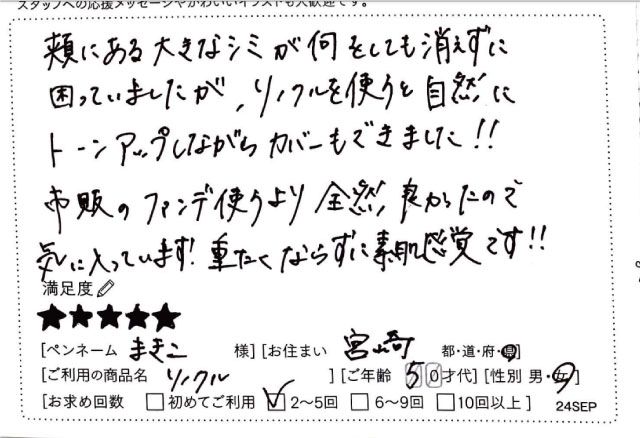 スタッフへの応援メッセージやかわいいイラストも大歓迎です。
頬にある大きなシミが何をしても消えずに
困っていましたが、リノクルを使うと自然に
トーンアップしながらカバーもできました!!
市販のファンデ使うより全然良かったので
気に入っています!重たくならずに素肌感覚です!!
満足度
★★★★★
[ペンネーム まきこ 様] [お住まい 宮崎 都・道・府・県]
[ご利用の商品名 リノクル ] [ご年齢 50才代] [性別 男・女]
[お求め回数 □初めてご利用 ☑2〜5回 □6〜9回 □10回以上] 24SEP